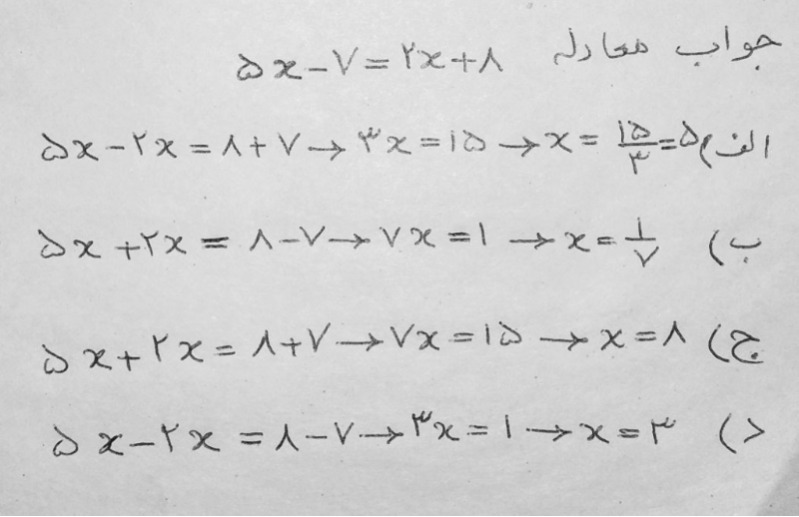 جواب معادله ۵x-۷=۲x+۸
الف) ۵x-۲x=۸+۷→۳x=۱۵→x=۱۵/۳=۵
ب) ۵x+۲x=۸-۷→۷x=۱→x=۱/۷
ج) ۵x+۲x=۸+۷→۷x=۱۵→x=۸
د) ۵x-۲x=۸-۷→۳x=۱→x=۳